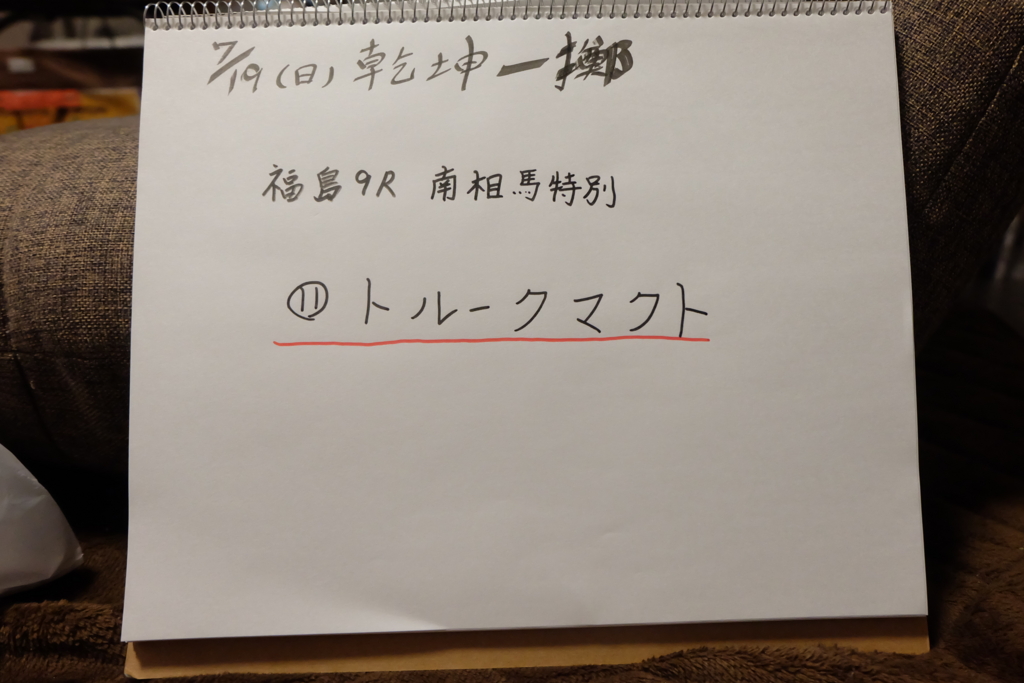 7/19(日) 乾坤一擲
福島9R 南相馬特別
⑪ トルークマクト